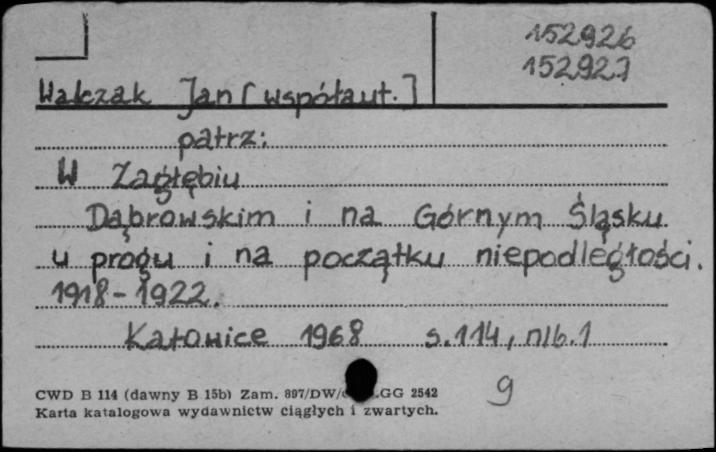 152926
152927
Walczak Jan [współaut.]
patrz:
W Zagłębiu
Dąbrowskim i na Górnym Śląsku
u progu i na początku niepodległości.
1918-1922.
Katowice 1968 s.114, nlb.1
CWD B 114 (dawny B 15b) Zam. 897/DW/ .GG 2542
Karta katalogowa wydawnictw ciągłych i zwartych.
9